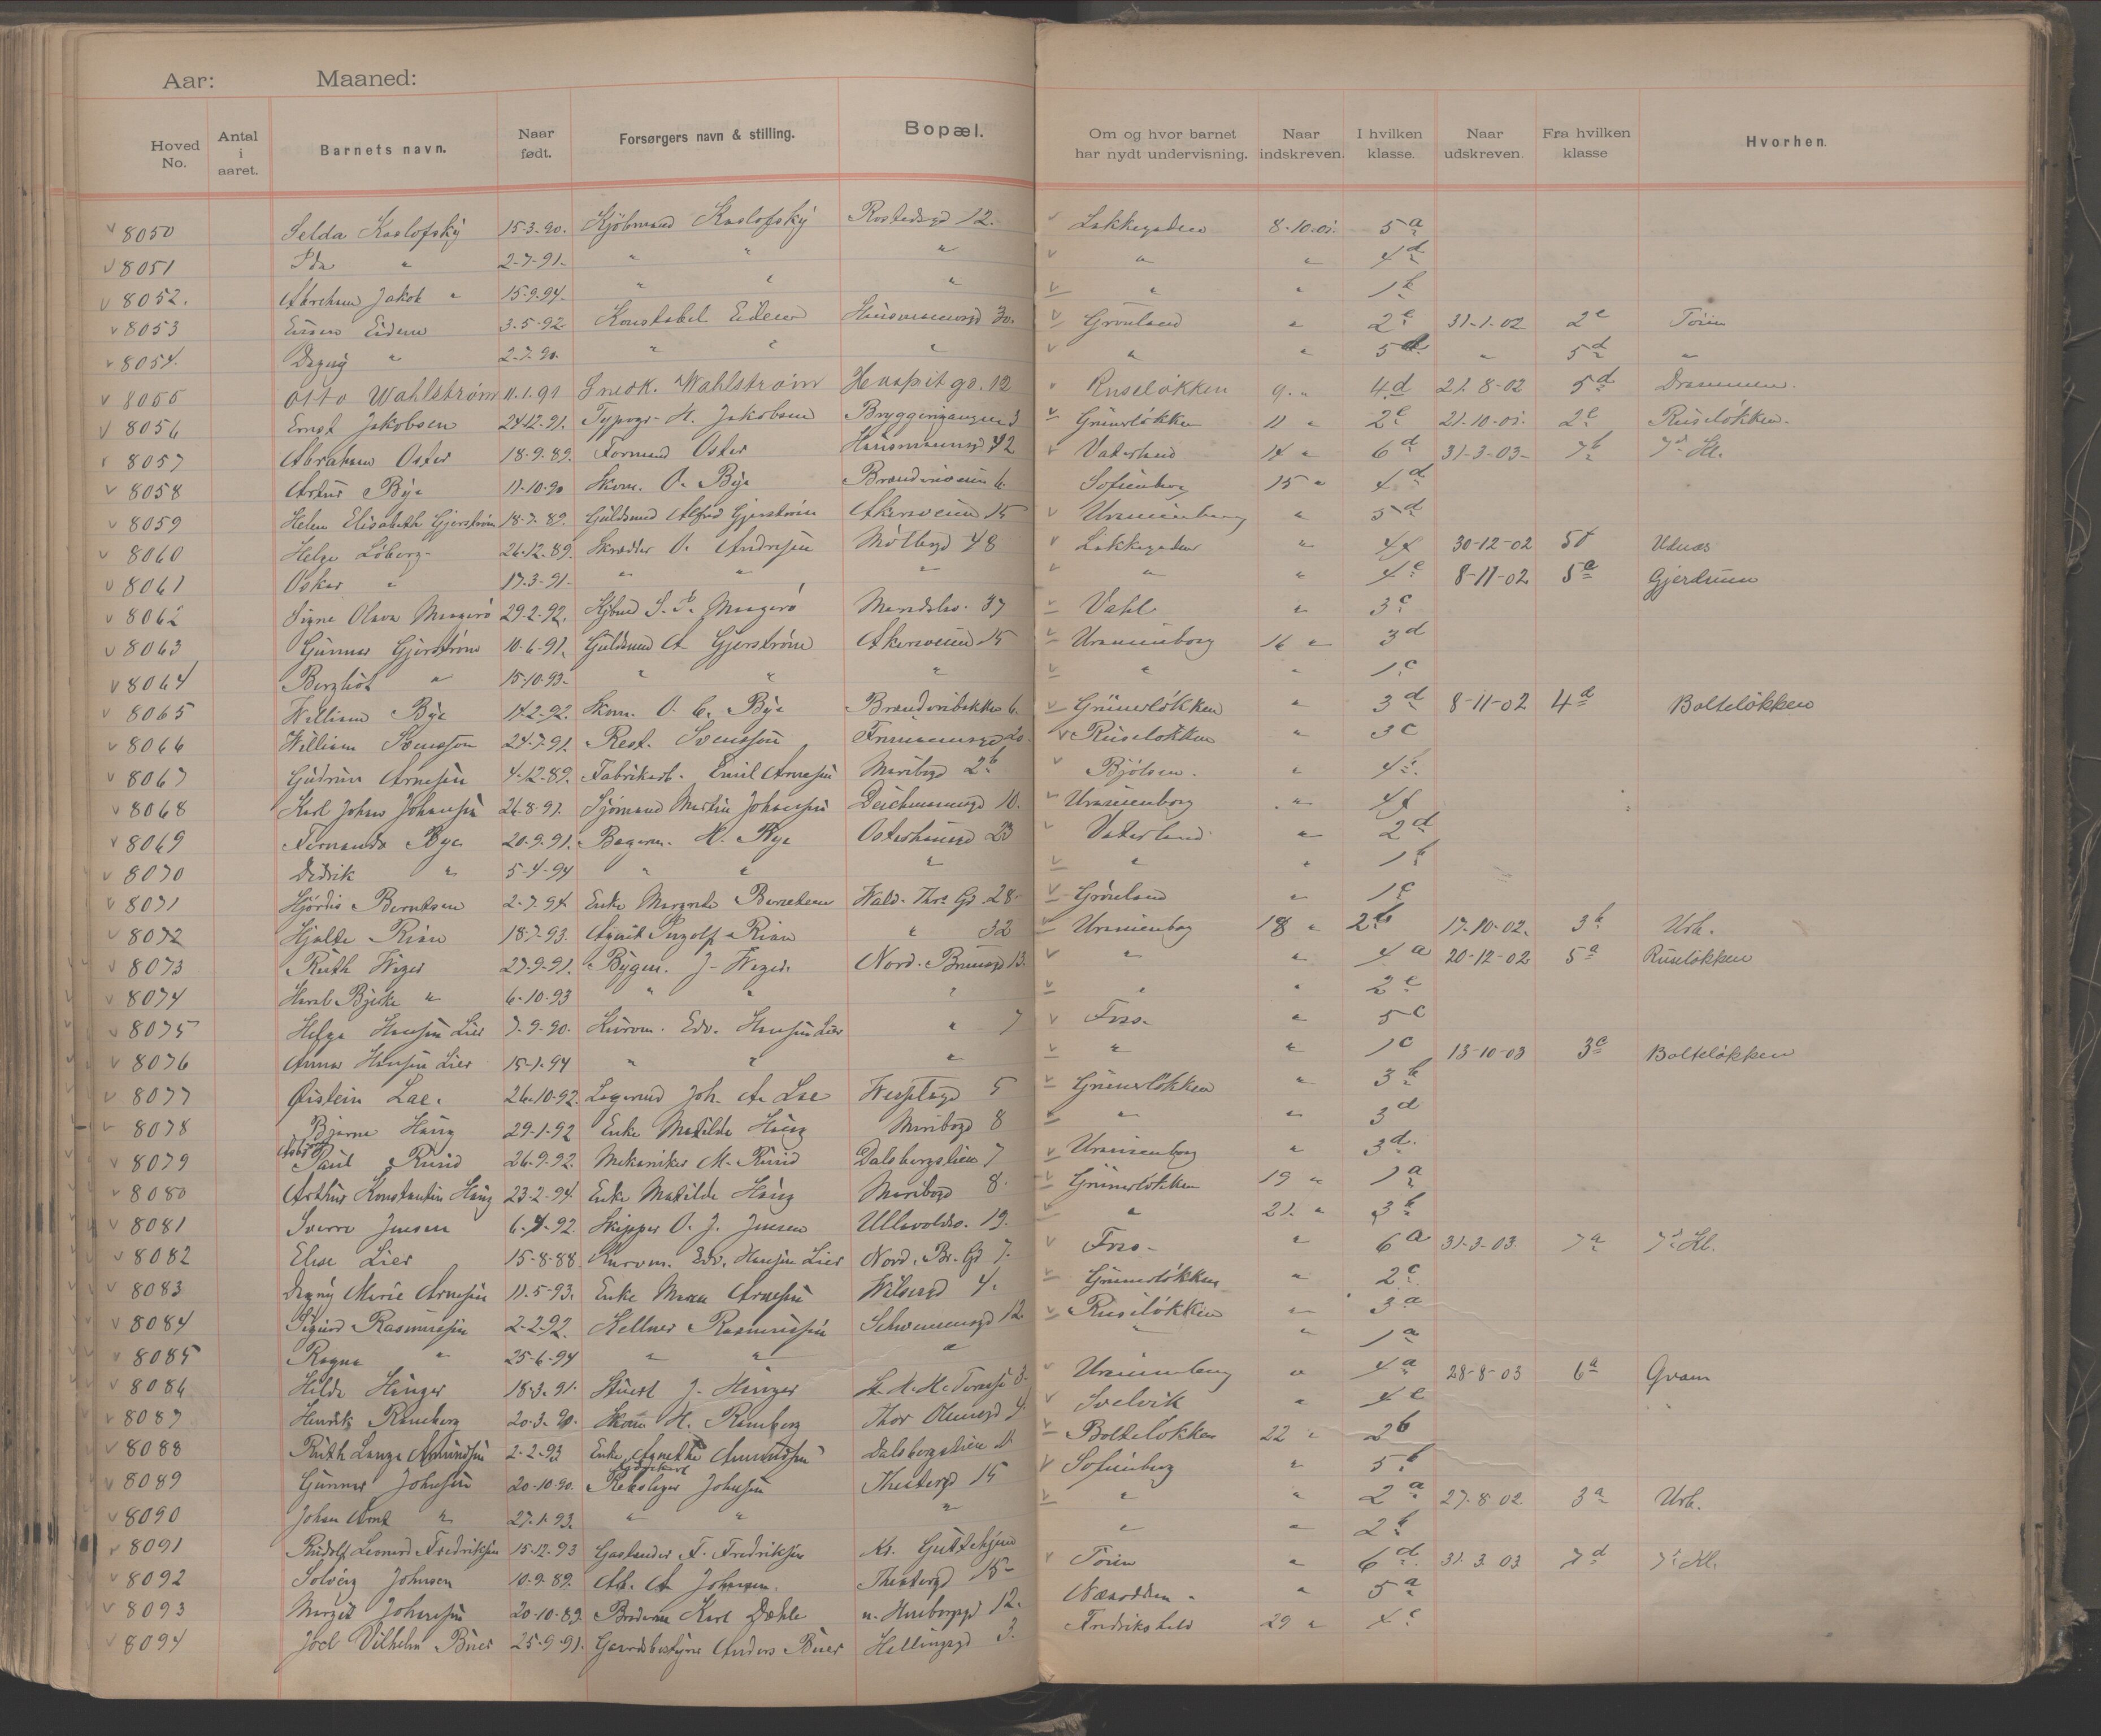 Aar: Maaned:
Hoved No. Antal i aaret. Barnets navn. Naar født. Forsørgers navn & stilling. Bopæl. Om og hvor barnet har nydt undervisning. Naar indskreven. I hvilken klasse. Naar udskreven. Fra hvilken klasse Hvorhen.
8050 Selda Koslofsky 15-3-90. Kjöbmand Koslofsky 12. Lakkegaden 8-10-01. 5a
8051 Ida " 2-7-91. " " " " " 4d
8052. Abraham Jakob " 15-9-94. " " " " " 1b
8053 Eidem 3-5-92. Konstabel Eidem Hausmannsgd 30. Grönland " 2e 31-1-02 2e Töien
8054. Dagny " 2-7-90. " " " " " 5d " 5d "
8055 Otto Wahlström 11.1.91 Snedk. Wahlström 12 Ruselökken 9. " 4d 21. 8-02 5d Drammen.
8056 Ernst Jakobsen 24-12-91. Typogr. H. Jakobsen Bryggerigangen 3 Grünerlökken 11 " 2e 21-10-01. 2e Ruselökken.
8057 Abraham Oster 18-9-89. Formand Oster Hausmannsgd 42 Vaterland 14 " 6d 31-3-03- 7b 7d Kl.
8058 Artur Bye 11-10-90 Skom. O. Bye 6. Sofienberg 15 " 4d
8059 Helen Elisabeth Gjerström 18-7-89. Guldsmed Alfred Gjerström Akersveien 15 Uranienborg " 5d
8060 Helge Löberg 26-12-89. Skrædder O. Andresen Möllergd 48 Lakkegaden " 4f 30-12-02 5f
8061 Oskar " 17-3-91- " " " " " 4e 8-11-02 5a Gjerdrum
8062 Signe Olava Mangerö 29-2-92. Mangerö 37 Vahl " 3c
8063 Gunnar Gjerström 10-6-91. Guldsmed A Gjerström Akersveien 15 Uranienborg 16 " 3d
8064 Bergliot " 15-10-93- " " " " " 1c
8065 William Bye 14-2-92. Skom. O. C. Bye Brænderibakken 6. Grünerlökken " 3d 8-11-02 4d Bolteløkken
8066 William Svensson 24-7-91. Rest. Svensson 20. Ruselökken " 3c
8067 Gudrun Arnesen 4-12-89. Fabrikarb. Emil Arnesen Maribogd 2b Bjölsen. " 4e
8068 Karl Johan Johansen 26-8-91. Sjömand Martin Johansen Deichmannsgd 10. Uranienborg " 4f
8069 Fernanda Bye 20-9-91. Bagerm. H. Bye Osterhausgd 23 Vaterland " 2d
8070 Didrik " 5-4-94 " " " " " 1b
8071 Hjördis Berntsen 2-7-94 Enke Margrete Berntsen Wald. Thr. Gd. 28- Grönland " 1c
8072 Hjalte Rian 18-7-93. Agent Ingolf Rian " 32 Uranienborg 18 " 2b 17-10-02. 3b Urb.
8073 Ruth Weger 27-9-91. Bygm. J. Weger. Nord. Brunsgd 13. " " 4a 20-12-02 5a Ruselökken
8074 Bjerke " 6-10-93 " " " " " 2e
8075 Helga Hansen Lier 7-9-90. Kurvm. Edv. Hansen Lier " 7 Foss- " 5c
8076 Anna Hansen Lier 15-1-94 " " " " " 1c 13-10-03 3c Bolteløkken
8077 Øistein Lae. 26-10-92. Lagermd Joh. A. Lae 5 Grünerlökken " 3b
8078 Bjarne Haug 29-1-92 Enke Matilde Haug Maribogd 8 " " 3d
8079 Paul Ruud 26-9-92. Mekaniker M. Ruud Dalsbergstien 7 Uranienborg " 3d.
8080 Arthur Konstantin Haug 23-2-94. Enke Matilde Haug Maribogd 8. Grünerlökken 19 " 1a
8081 Sverre Jensen 6-4-92. Skipper O. J. Jensen Ullevoldsv. 19. " 21. " 3b
8082 Elise Lier 15-8-88. Kurvm. Edv. Hansen Lier Nord. Br. Gd 7. Foss- " 6a 31-3-03. 7a 7d Kl.
8083 Dagny Marie Arnesen 11-5-93. Enke Maren Arnesen Wilsesgd 4. Grünerlökken " 2c
8084 Sigurd Rasmussen 2-2-92. Kellner Rasmussen Schwensensgd 12. Ruselökken " 3a
8085 Ragna " 25-6-94 " " " " " 1a
8086 Hilda Hunger 18-3-91. J. Hunger 3. Uranienborg " 4a 28-8-03 6a Gvam
8087 Henrik Ramberg 20-3-90. Skom H. Ramberg Thor Olsensgd Svelvik " 4e
8088 Ruth Amundsen 2-2-93 Enke Anethe Amundsen Dalsbergstien Bolteløkken 22 " 2b
8089 Gunnar Johnsen 20-10-90. Johnsen Theatergd 15 Sofienberg " 5b
8090 Johan " 27-1-93. " " " " " 2a 27-8-02. 3a Urb.
8091 Rudolf Leonard Fredriksen 15-12-93 F. Fredriksen Kr. Guttehjem " " 2b
8092 Solveig Johnsen 10-9-89. A Johnsen. Theatergd 15 Töien " 6d 31. 3. 03 7d 7d Kl.
8093 Margit Johansen 20-10-89. Karl Dæhle 12. " 5a
8094 Joel Vilhelm Buer 25-9-91. Gaardsbestyrer Anders Buer Hellingsgd 3. Fredrikshald 29 " 4c